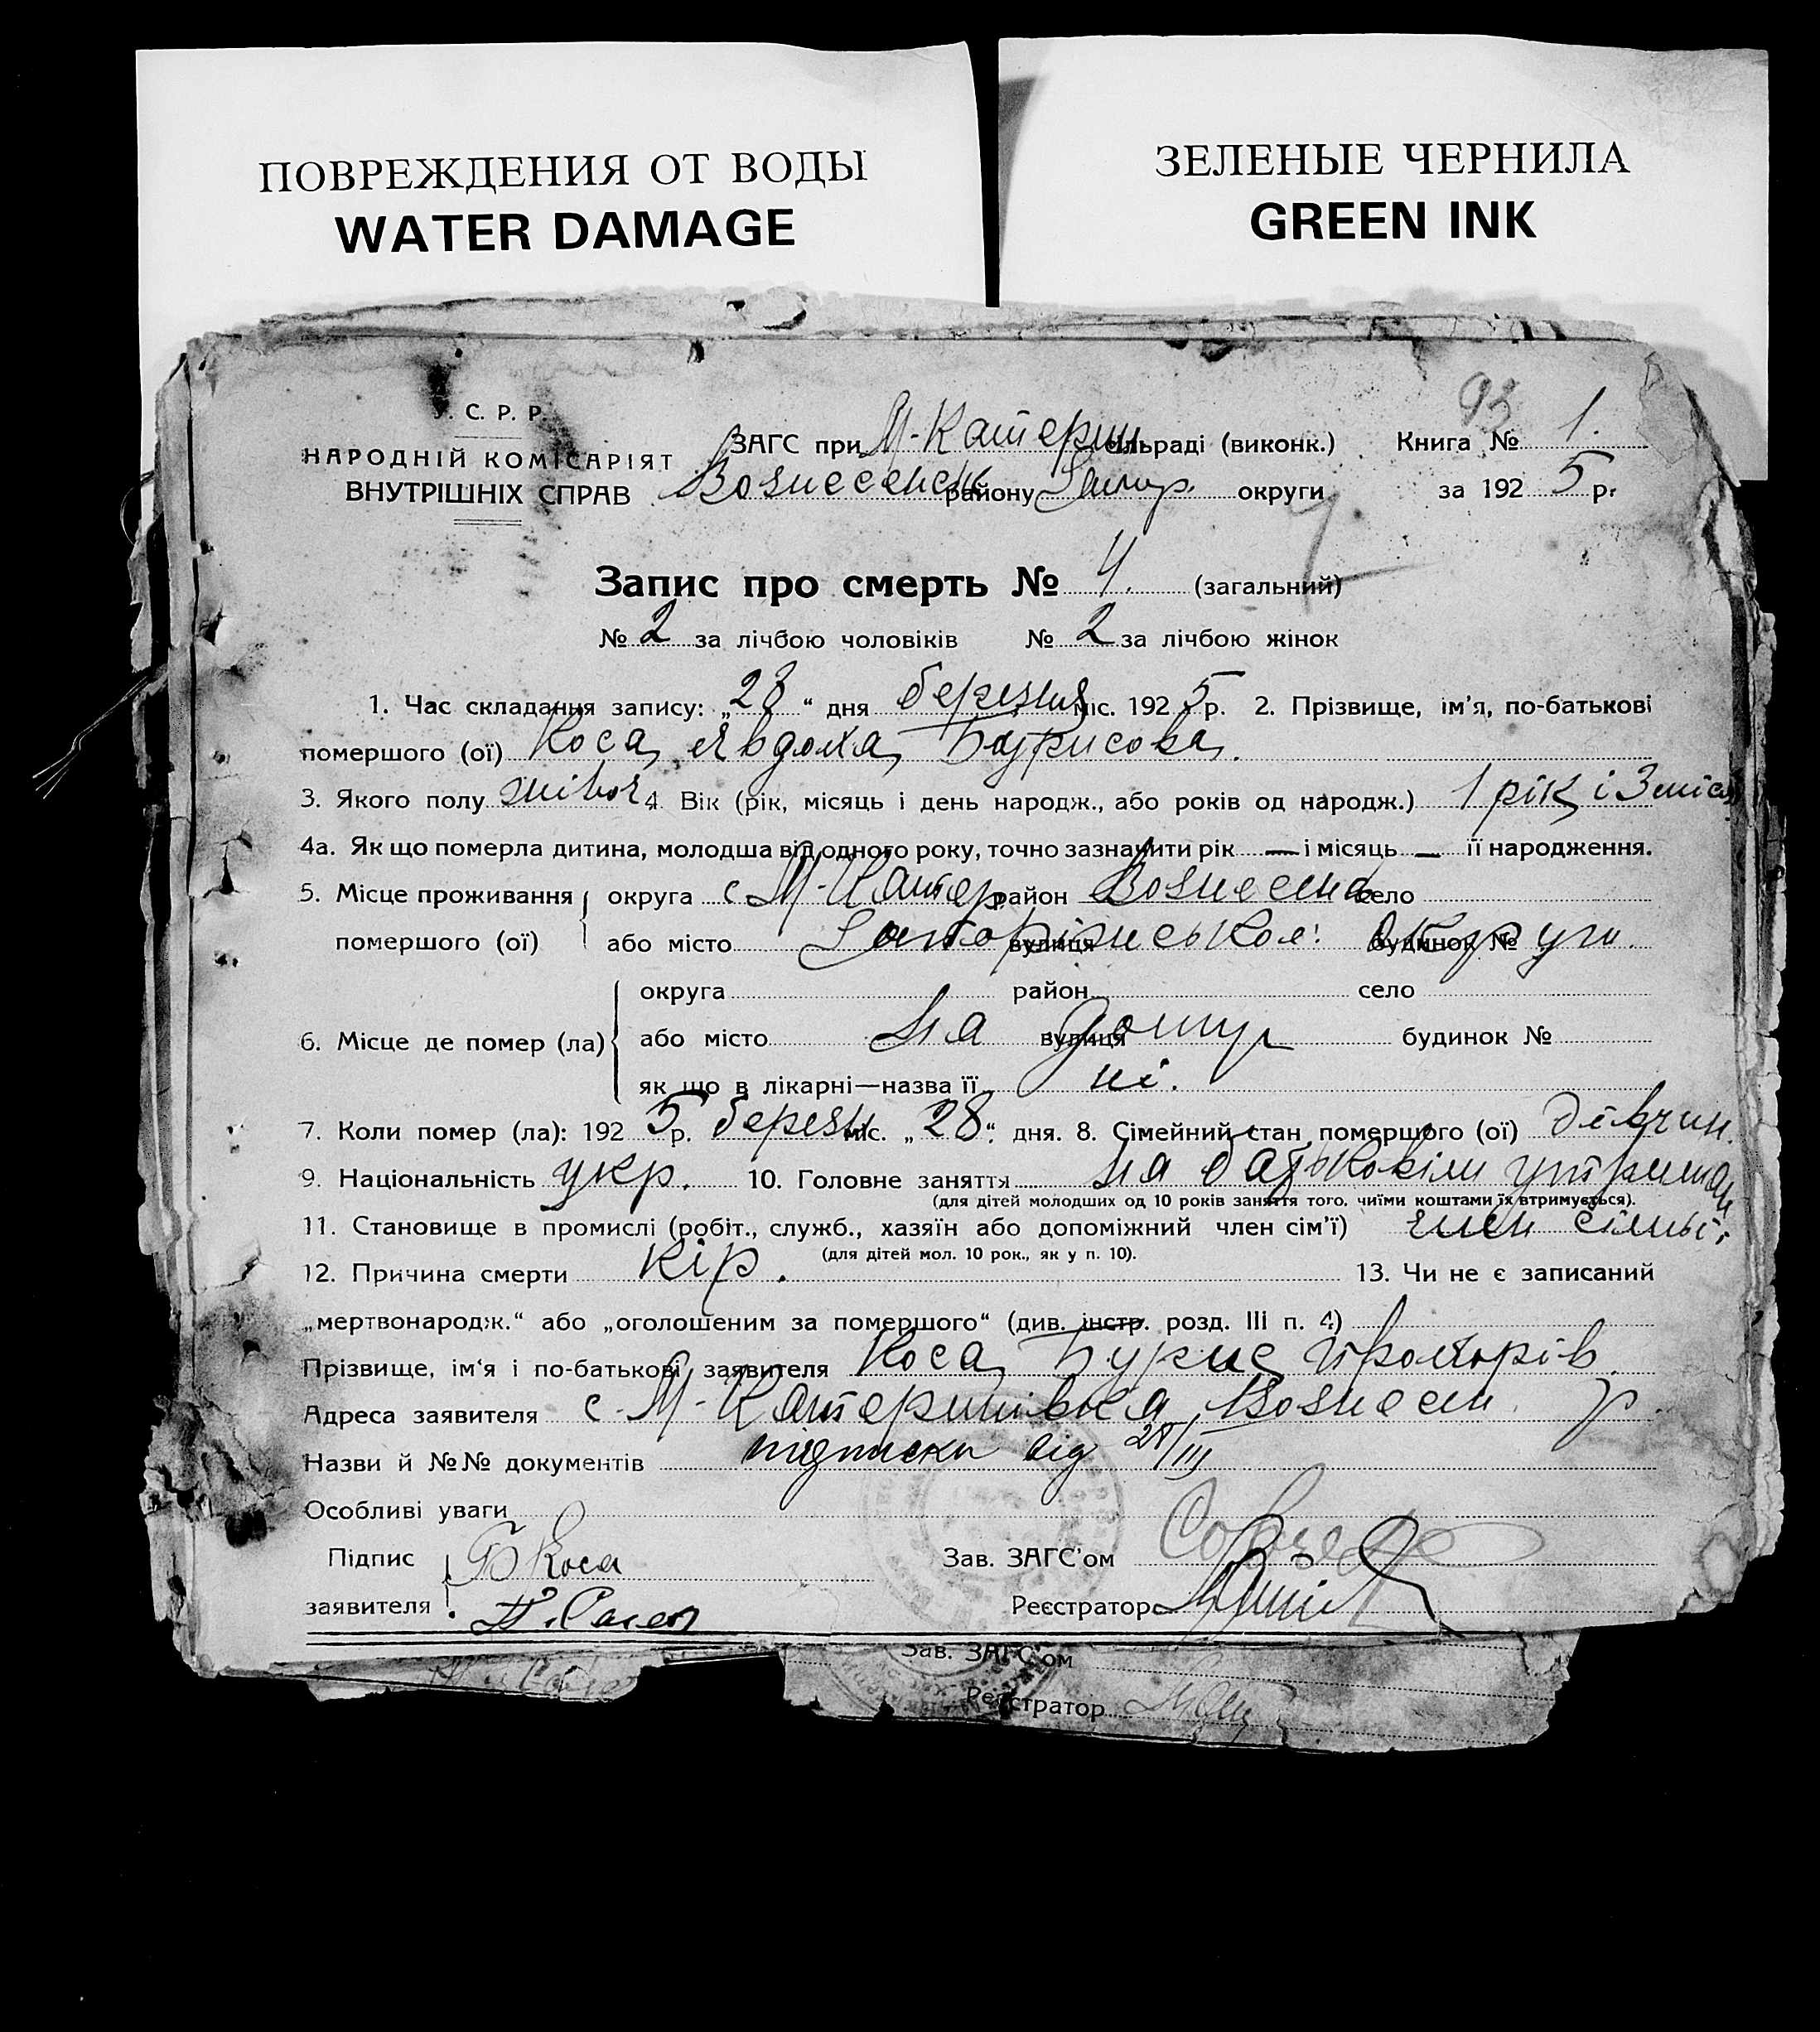 ПОВРЕЖДЕНИЯ ОТ ВОДЫ
WATER DAMAGE
ЗЕЛЕНЫЕ ЧЕРНИЛА
GREEN INK
93
. С. Р. Р.
НАРОДНІЙ КОМІСАРІЯТ
ВНУТРІШНІХ СПРАВ
ЗАГС при М-Катерин сільраді (виконк.) Книга № 1.
Вознесенськ району Запор. округи за 1925 р.
Запис про смерть № 4. (загальний)
№ 2 за лічбою чоловіків № 2 за лічбою жінок
1. Час складання запису: „28“ дня березня міс. 1925 р. 2. Прізвище, ім'я, по-батькові
помершого (ої) Коса Явдоха Бурисова.
3. Якого полу жіноч 4. Вік (рік, місяць і день народж., або років од народж.) 1 рік і 3 міся
4а. Як що померла дитина, молодша від одного року, точно зазначити рік — і місяць — її народження.
5. Місце проживання округа с М-Катер район Вознесенс село
помершого (ої) або місто Запорізської вулиця округи. будинок №
округа район село
6. Місце де помер (ла) або місто на дому вулиця будинок №
як що в лікарні—назва її ні.
7. Коли помер (ла): 1925 р. березн міс. „28“ дня. 8. Сімейний стан помершого (ої) дівчин.
9. Національність укр. 10. Головне заняття на батьковім утриман
(для дітей молодших од 10 років заняття того, чиїми коштами їх втримується).
11. Становище в промислі (робіт., служб., хазяїн або допоміжний член сім'ї) член сімьї
(для дітей мол. 10 рок., як у п. 10).
12. Причина смерти кір. 13. Чи не є записаний
„мертвонародж.“ або „оголошеним за помершого“ (див. інстр. розд. III п. 4)
Прізвище, ім'я і по-батькові заявителя Коса Бурис
Адреса заявителя с. М-Катеринівка Вознесен. р.
Назви й №№ документів підписки від 28/III
Особливі уваги
Підпис Б Коса
заявителя
Зав. ЗАГС'ом
Реєстратор
Зав. ЗАГС'ом
Реєстратор